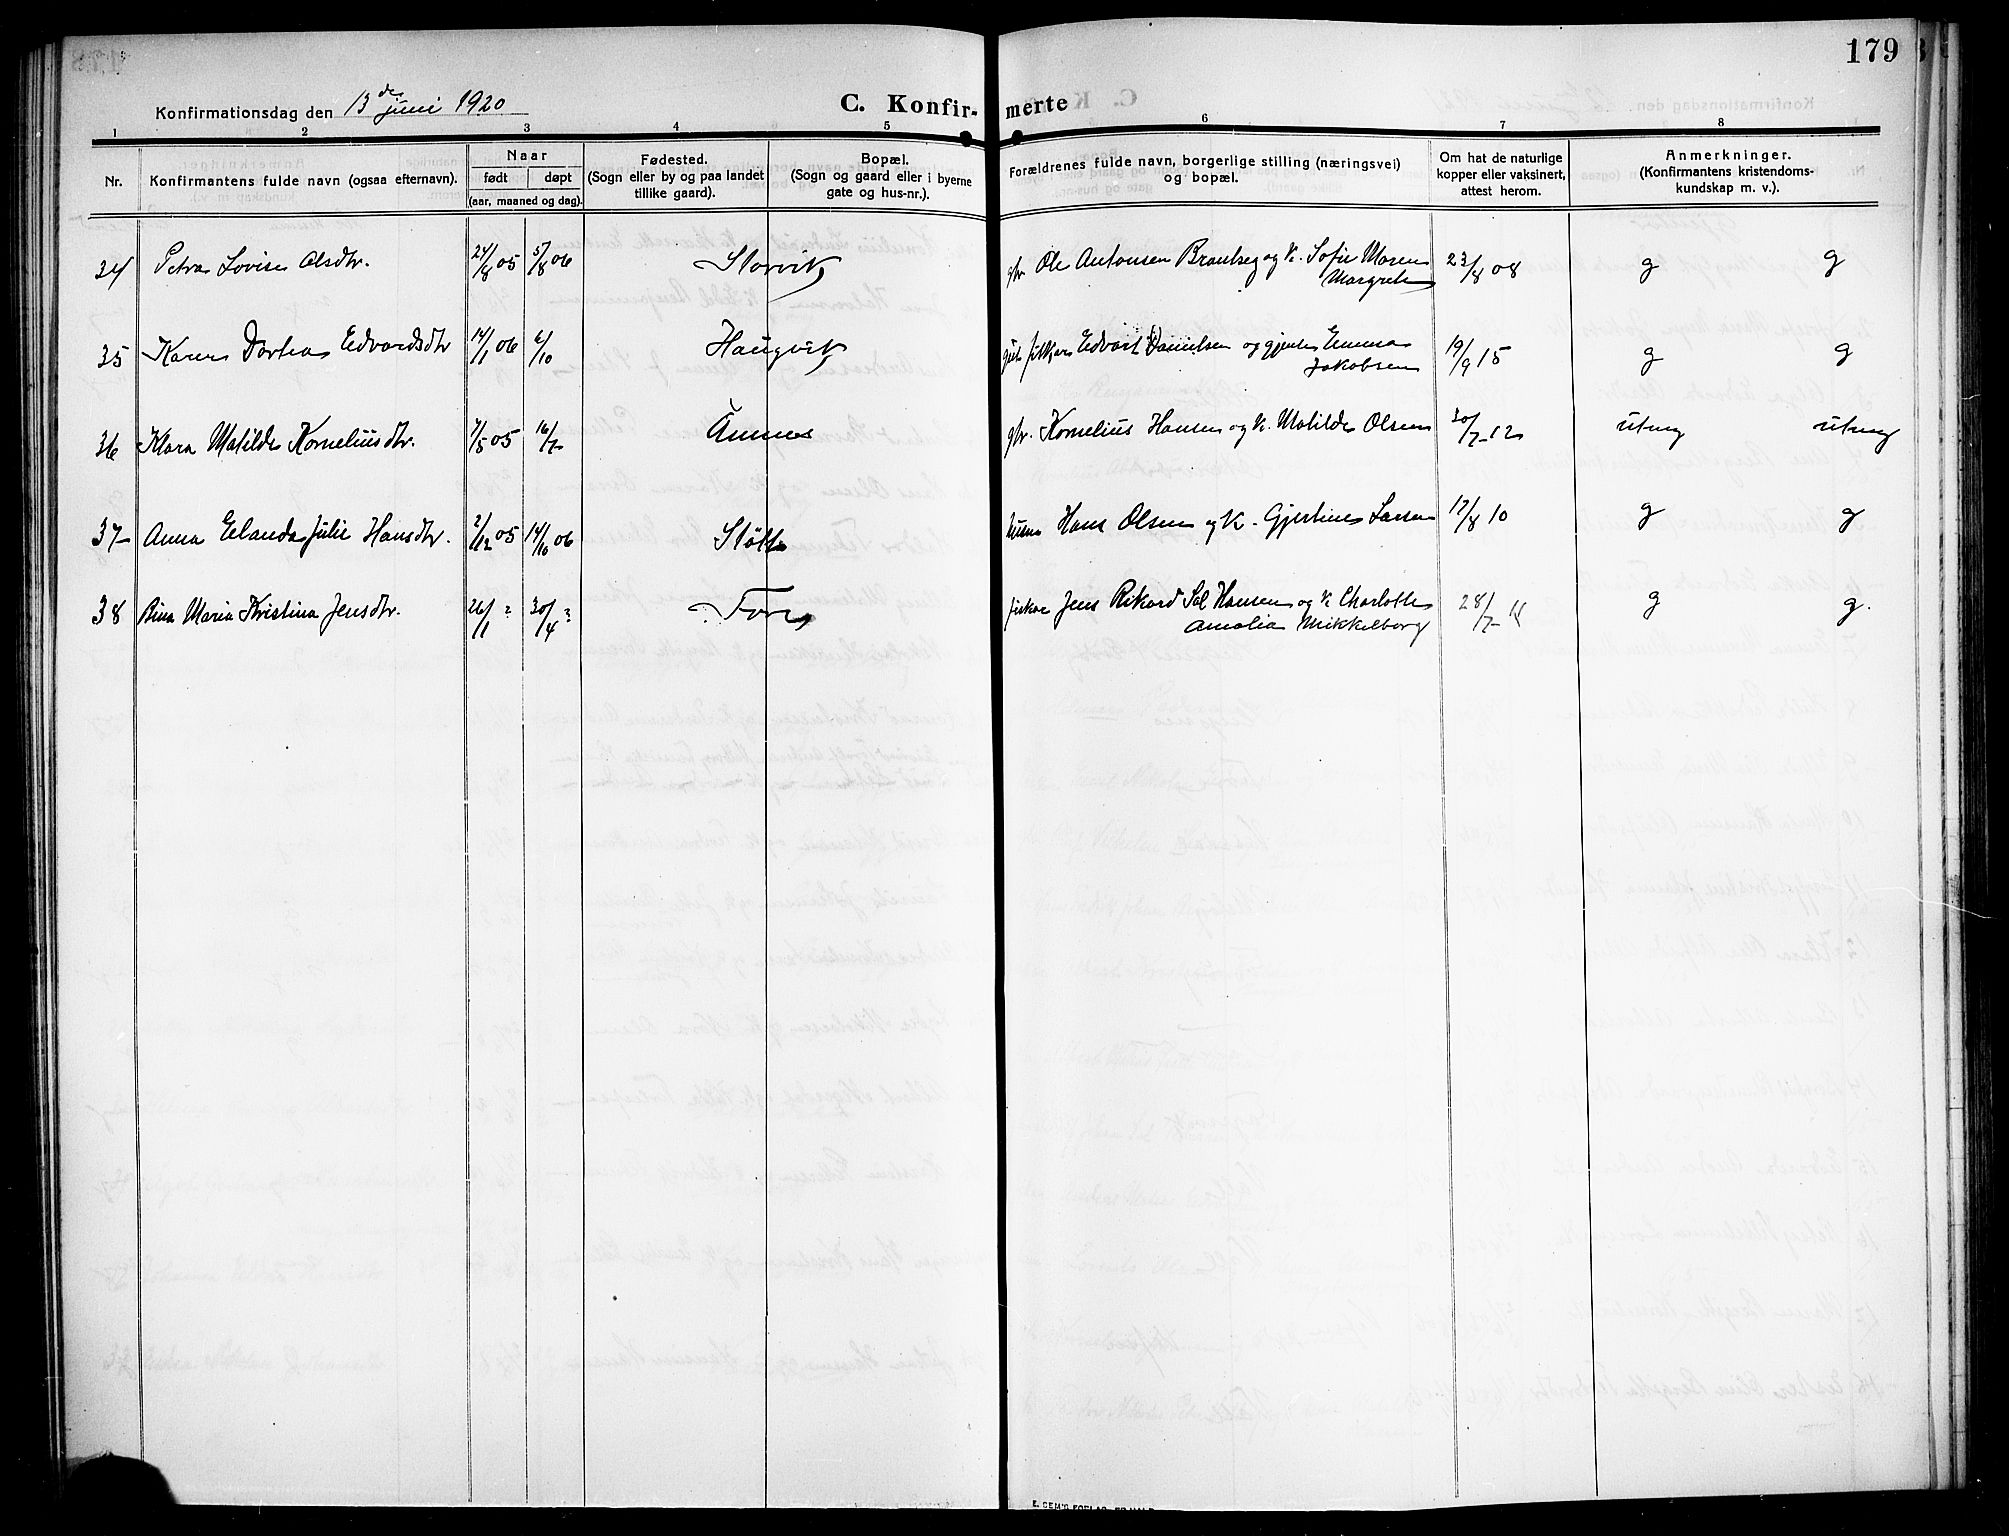 179
Konfirmationsdag den 13 des juni 1920
C. Konfir- merte
1 2 3 4 5 6 7 8
Nr. Konfirmantens fulde navn (ogsaa efternavn). Naar født døpt (aar, maaned og dag). Fødested. (Sogn eller by og paa landet tillike gaard). Bopæl. (Sogn og gaard eller i byerne gate og hus-nr.). Forældrenes fulde navn, borgerlige stilling (næringsvei) og bopæl. Om hat de naturlige kopper eller vaksinert, attest herom. Anmerkninger. (Konfirmantens kristendoms- kundskap m. v.).
34 Petra Lovise Olsdtr. 24/8 05 5/8 06 Storvik gbr. Ole Antonsen Brantseg og k. Sofie Maren Margrete 23/8 08 g g
35 Karen Dortea Edvardsdtr 14/1 06 6/10 Haugvik fiskar Edvart Danielsen og Emma Jakobsen 19/9 15 g g
36 Klara Matilde Korneliusdtr. 7/5 05 16/7 Åmnes gbr. Kornelius Hansen og k. Matilde Olsen 30/7-12 utmg utmg
37 Anna Elanda Julie Hansdtr. 2/12 05 14/10 06 Støtt Hans Olsen og k. Gjertine Larsen 17/8 10 g g
38 Rina Maria Kristina Jensdtr. 26/1 ? 30/4 ? Fore fiskar Jens Rikard Sel Hansen og k. Charlotte Amalia Mikkelborg 28/7- g g.